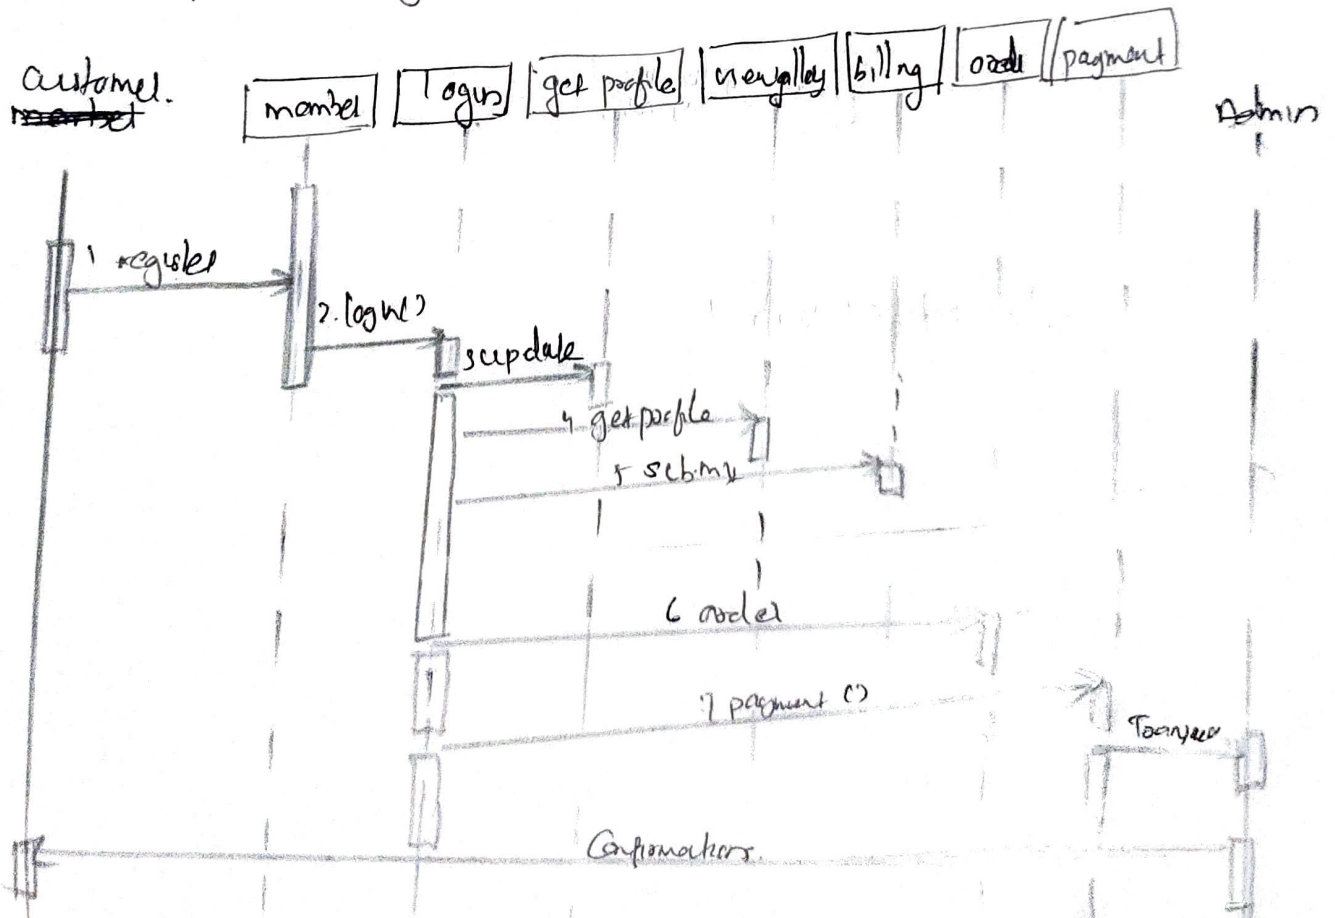 Customer.
member
member
login
get profile
billing
order
payment
Admin
1 register
2. login()
3 update
4 get profile
5 submit
6 order
7 payment ()
Transfer
Confirmation.